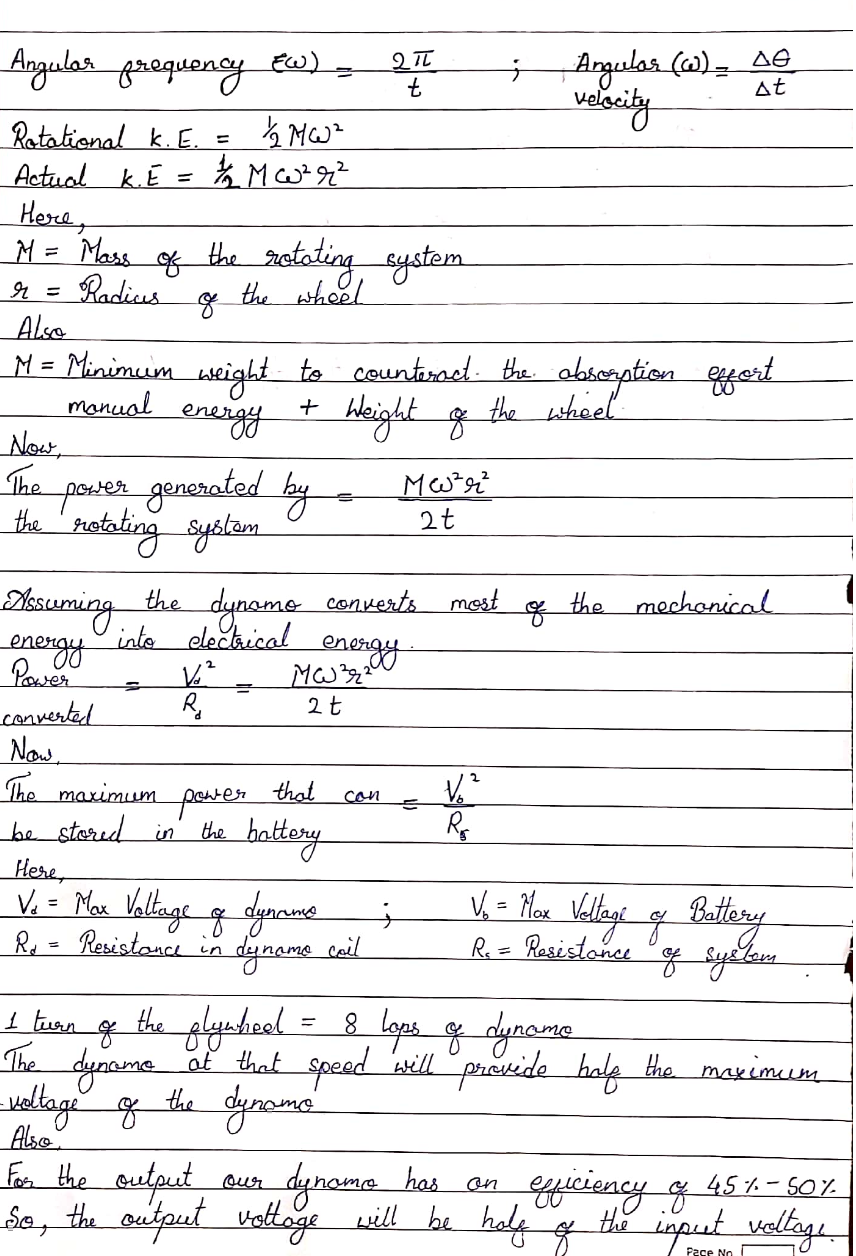 Angular frequency (ω) = 2π/t ; Angular (ω) = Δθ/Δt
velocity
Rotational K.E. = 1/2 Mω²
Actual K.E = 1/2 Mω²r²
Here,
M = Mass of the rotating system
r = Radius of the wheel
Also
M = Minimum weight to counteract the absorption effort
manual energy + Weight of the wheel
Now,
The power generated by = Mω²r²/2t
the rotating system
Assuming the dynamo converts most of the mechanical
energy into electrical energy.
Power = V_d²/R_d = Mω²r²/2t
converted
Now,
The maximum power that can = V_b²/R_s
be stored in the battery
Here,
V_d = Max Voltage of dynamo ; V_b = Max Voltage of Battery
R_d = Resistance in dynamo coil R_s = Resistance of system
1 turn of the flywheel = 8 laps of dynamo
The dynamo at that speed will provide half the maximum
voltage of the dynamo
Also,
For the output our dynamo has an efficiency of 45%-50%
So, the output voltage will be half of the input voltage.
Page No